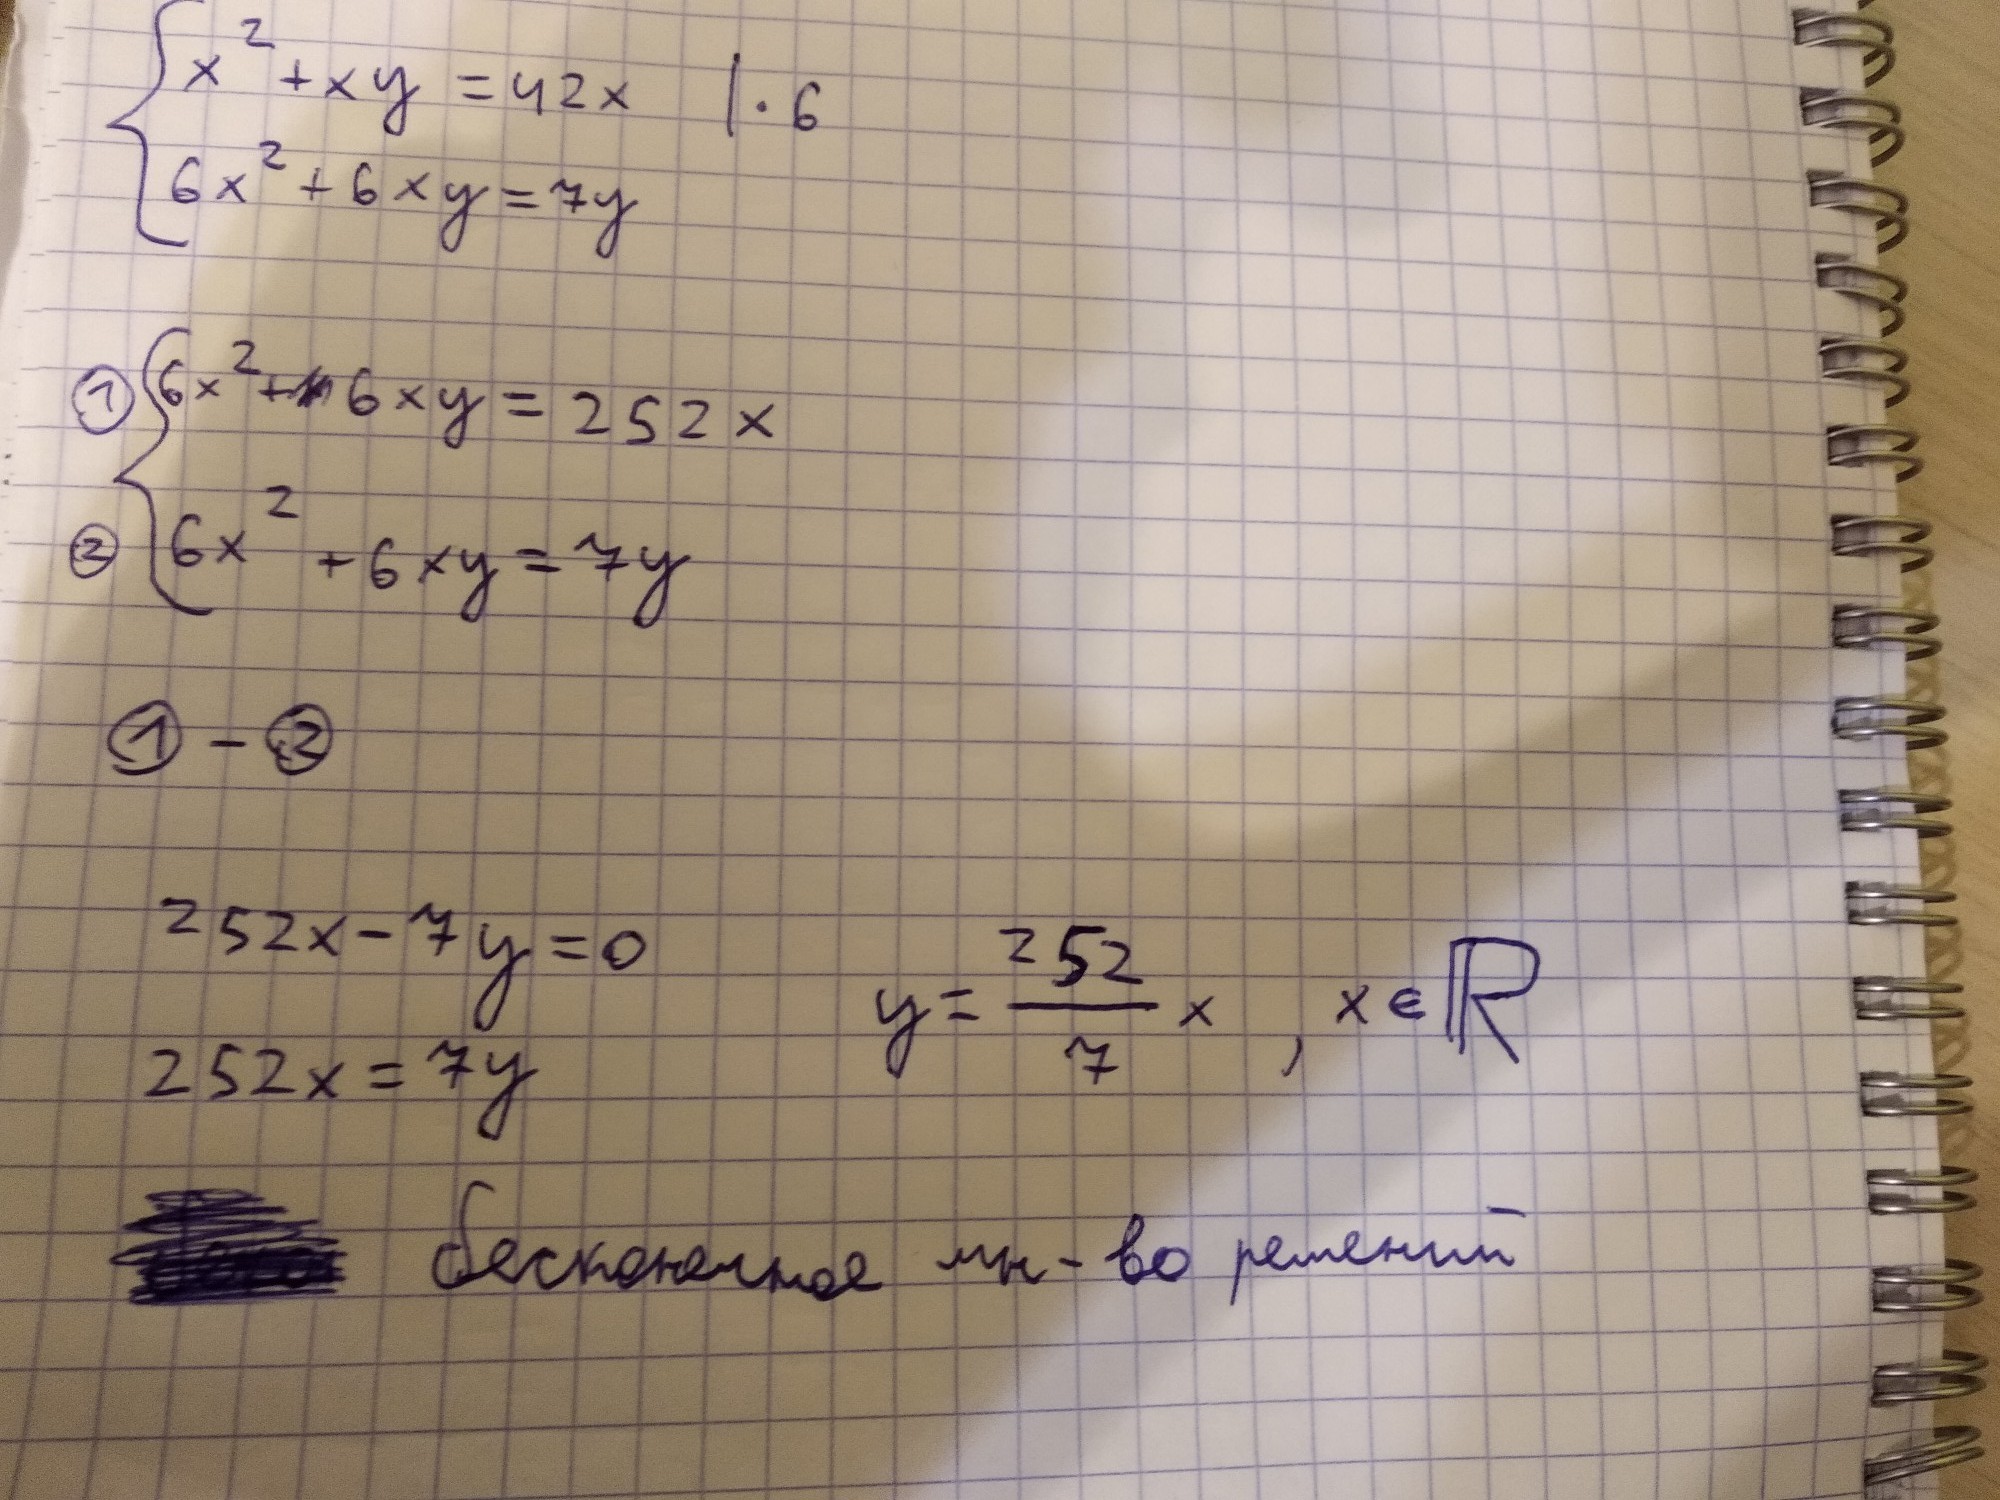 x² + xy = 42x | · 6
6x² + 6xy = 7y
① 6x² + 6xy = 252x
② 6x² + 6xy = 7y
① - ②
252x - 7y = 0
y = 252/7 x , x ∈ ℝ
252x = 7y
бесконечное мн-во решений